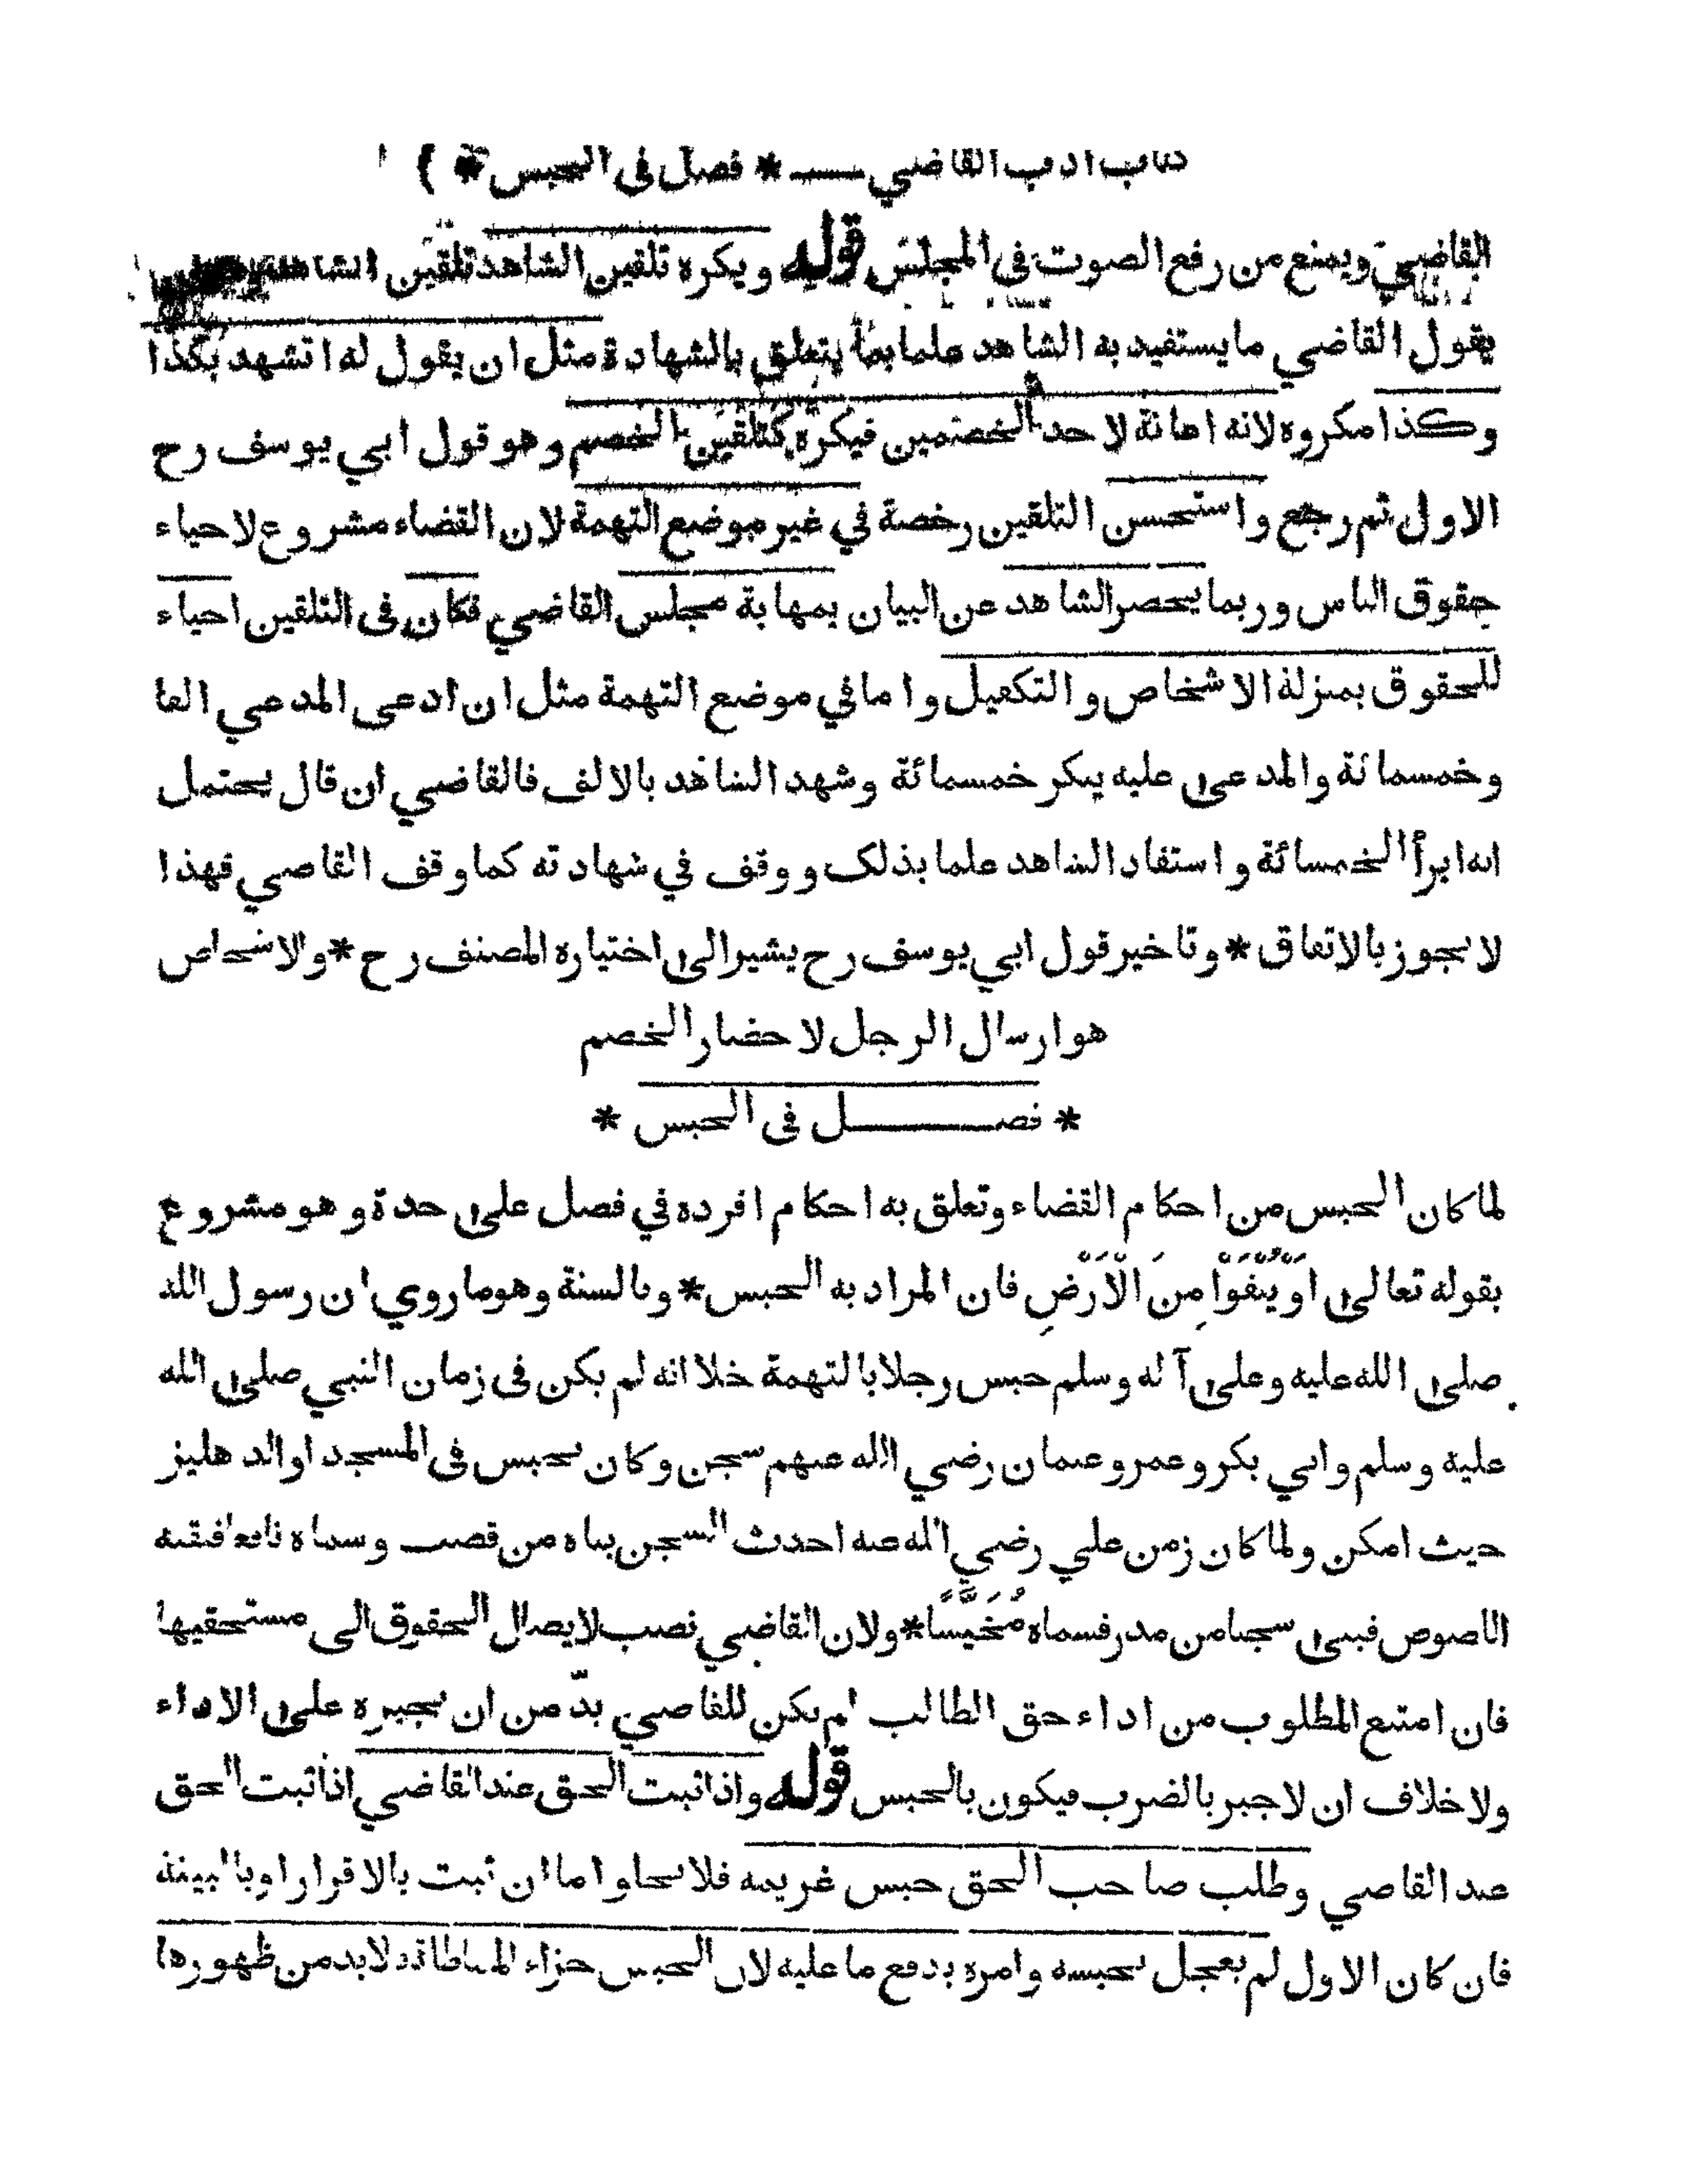 كتاب ادب القاضي — * فصل فى الحبس *
القاضي ويمنع من رفع الصوت فى المجلس قوله ويكره تلقين الشاهد تلقين الشاهد
يقول القاضي ما يستفيد به الشاهد علما بما يتعلق بالشهادة مثل ان يقول له اتشهد بكذا
وكذا مكروه لانه اعانة لاحد الخصمين فيكره كتلقين الخصم وهو قول ابي يوسف رح
الاول ثم رجع واستحسن التلقين رخصة في غير موضع التهمة لان القضاء مشروع لاحياء
حقوق الناس وربما يحصر الشاهد عن البيان بمهابة مجلس القاضي فكان فى التلقين احياء
للحقوق بمنزلة الاشخاص والتكفيل واما في موضع التهمة مثل ان ادعى المدعي الفا
وخمسمائة والمدعى عليه ينكر خمسمائة وشهد الشاهد بالالف فالقاضي ان قال يحتمل
انه ابرأ الخمسمائة واستفاد الشاهد علما بذلك ووقف في شهادته كما وقف القاضي فهذا
لا يجوز بالاتفاق * وتاخير قول ابي يوسف رح يشير الى اختياره المصنف رح * والاشخاص
هو ارسال الرجل لاحضار الخصم
* فصل فى الحبس *
لما كان الحبس من احكام القضاء وتعلق به احكام افرده في فصل على حدة وهو مشروع
بقوله تعالى اَوْ يُنْفَوْا مِنَ الْاَرْضِ فان المراد به الحبس * وبالسنة وهو ما روي ان رسول الله
صلى الله عليه وعلى آله وسلم حبس رجلا بالتهمة خلا انه لم يكن فى زمان النبي صلى الله
عليه وسلم وابي بكر وعمر وعثمان رضي الله عنهم سجن وكان يحبس فى المسجد او الدهليز
حيث امكن ولما كان زمن علي رضي الله عنه احدث السجن بناه من قصب وسماه نافعا فنقبه
اللصوص فبنى سجنا من مدر فسماه مُخَيَّسًا * ولان القاضي نصب لايصال الحقوق الى مستحقيها
فان امتنع المطلوب من اداء حق الطالب لم يكن للقاضي بدّ من ان يجبره على الاداء
ولا خلاف ان لا جبر بالضرب فيكون بالحبس قوله واذا ثبت الحق عند القاضي اذا ثبت الحق
عند القاضي وطلب صاحب الحق حبس غريمه فلا يخلو اما ان ثبت بالاقرار او بالبينة
فان كان الاول لم يعجل بحبسه وامره بدفع ما عليه لان الحبس جزاء المماطلة فلا بد من ظهورها